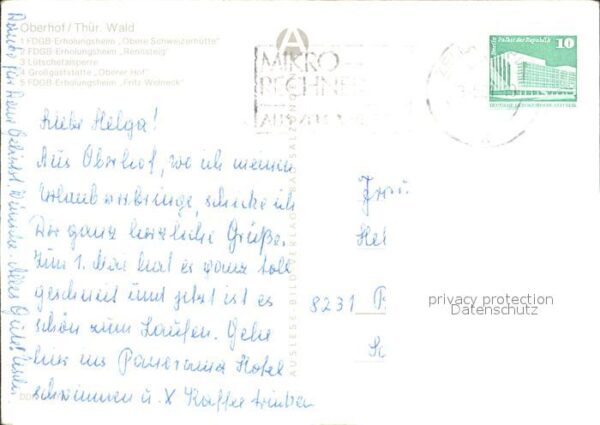 Oberhof / Thür. Wald
1 FDGB-Erholungsheim „Obere Schweizerhütte"
2 FDGB-Erholungsheim „Rennsteig"
3 Lütschetalsperre
4 Großgaststätte „Oberer Hof"
5 FDGB-Erholungsheim „Fritz Weineck"
A
MIKRO
RECHNER
Berlin, Palast der Republik
10
Liebe Helga!
Aus Oberhof, wo ich meinen
Urlaub verbringe, schicke ich
Dir ganz herzliche Grüße.
Zum 1. Mai hat es ganz toll
geschneit und jetzt ist es
schön zum Laufen. Gehe
hier ins Panorama Hotel
schwimmen u. Kaffee trinken
Danke für Deine Geburtst. Wünsche. Alles Gute!
Frau
Hel
8231
AUSLESE-BILD-VERLAG BAD SALZUNGEN
privacy protection
Datenschutz